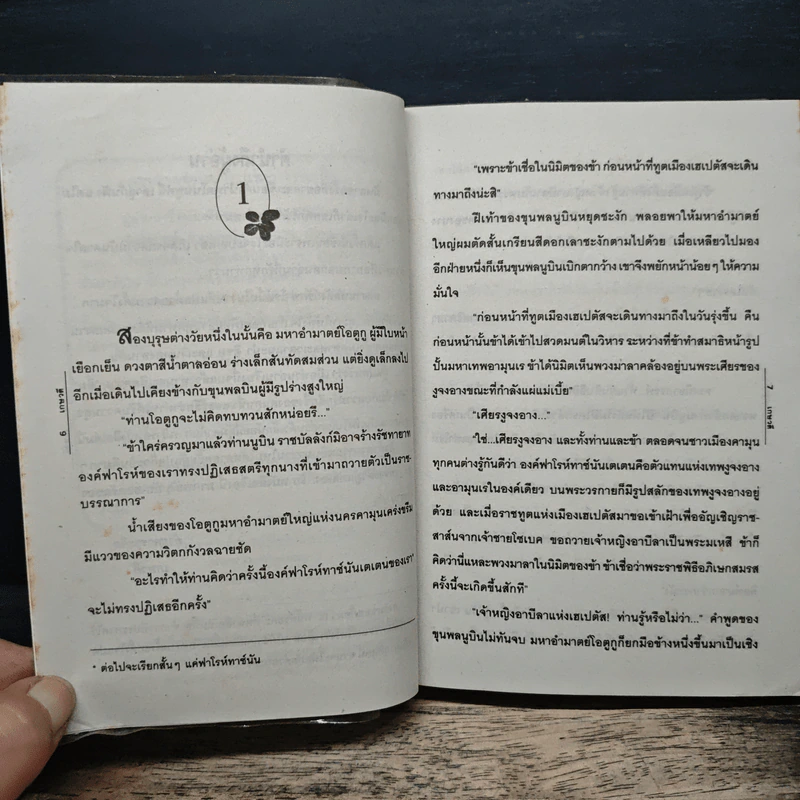 1
สองบุรุษต่างวัยหนึ่งในนั้นคือ มหาอำมาตย์โอตูกู ผู้มีใบหน้า
เยือกเย็น ดวงตาสีน้ำตาลอ่อน ร่างเล็กสันทัดสมส่วน แต่ยิ่งดูเล็กลงไป
อีกเมื่อเดินไปเคียงข้างกับขุนพลบินผู้มีรูปร่างสูงใหญ่
"ท่านโอตูกูจะไม่คิดทบทวนสักหน่อยรึ..."
"ข้าใคร่ครวญมาแล้วท่านนูบิน ราชบัลลังก์มิอาจร้างรัชทายาท
องค์ฟาโรห์ของเราทรงปฏิเสธสตรีทุกนางที่เข้ามาถวายตัวเป็นราช-
บรรณาการ"
น้ำเสียงของโอตูกูมหาอำมาตย์ใหญ่แห่งนครคามุนเคร่งขรึม
มีแววของความวิตกกังวลฉายชัด
"อะไรทำให้ท่านคิดว่าครั้งนี้องค์ฟาโรห์ทาซ์นันเตเตนของเรา*
จะไม่ทรงปฏิเสธอีกครั้ง"
* ต่อไปจะเรียกสั้นๆ แค่ฟาโรห์ทาซ์นัน
6 เกษวดี
"เพราะข้าเชื่อในนิมิตของข้า ก่อนหน้าที่ทูตเมืองเฮเปตัสจะเดิน
ทางมาถึงน่ะสิ"
ฝีเท้าของขุนพลนูบินหยุดชะงัก พลอยพาให้มหาอำมาตย์
ใหญ่ผมตัดสั้นเกรียนสีดอกเลาชะงักตามไปด้วย เมื่อเหลียวไปมอง
อีกฝ่ายหนึ่งก็เห็นขุนพลนูบินเบิกตากว้าง เขาจึงพยักหน้าน้อยๆ ให้ความ
มั่นใจ
"ก่อนหน้าที่ทูตเมืองเฮเปตัสจะเดินทางมาถึงในวันรุ่งขึ้น คืน
ก่อนหน้านั้นข้าได้เข้าไปสวดมนต์ในวิหาร ระหว่างที่ข้าทำสมาธิหน้ารูป
ปั้นมหาเทพอามุนเร ข้าได้นิมิตเห็นพวงมาลาคล้องอยู่บนพระเศียรของ
งูจงอางขณะที่กำลังแผ่แม่เบี้ย"
"เศียรงูจงอาง..."
"ใช่...เศียรงูจงอาง และทั้งท่านและข้า ตลอดจนชาวเมืองคามุน
ทุกคนต่างรู้กันดีว่า องค์ฟาโรห์ทาซ์นันเตเตนคือตัวแทนแห่งเทพงูจงอาง
และอามุนเรในองค์เดียว บนพระวรกายก็มีรูปสลักของเทพงูจงอางอยู่
ด้วย และเมื่อราชทูตแห่งเมืองเฮเปตัสมาขอเข้าเฝ้าเพื่ออัญเชิญราช-
สาส์นจากเจ้าชายโซเบค ขอถวายเจ้าหญิงอาบีลาเป็นพระมเหสี ข้าก็
คิดว่านี่แหละพวงมาลาในนิมิตของข้า ข้าเชื่อว่าพระราชพิธีอภิเษกสมรส
ครั้งนี้จะเกิดขึ้นสักที"
"เจ้าหญิงอาบีลาแห่งเฮเปตัส! ท่านรู้หรือไม่ว่า..." คำพูดของ
ขุนพลนูบินไม่ทันจบ มหาอำมาตย์โอตูกูก็ยกมือข้างหนึ่งขึ้นมาเป็นเชิง
7 เกษวดี